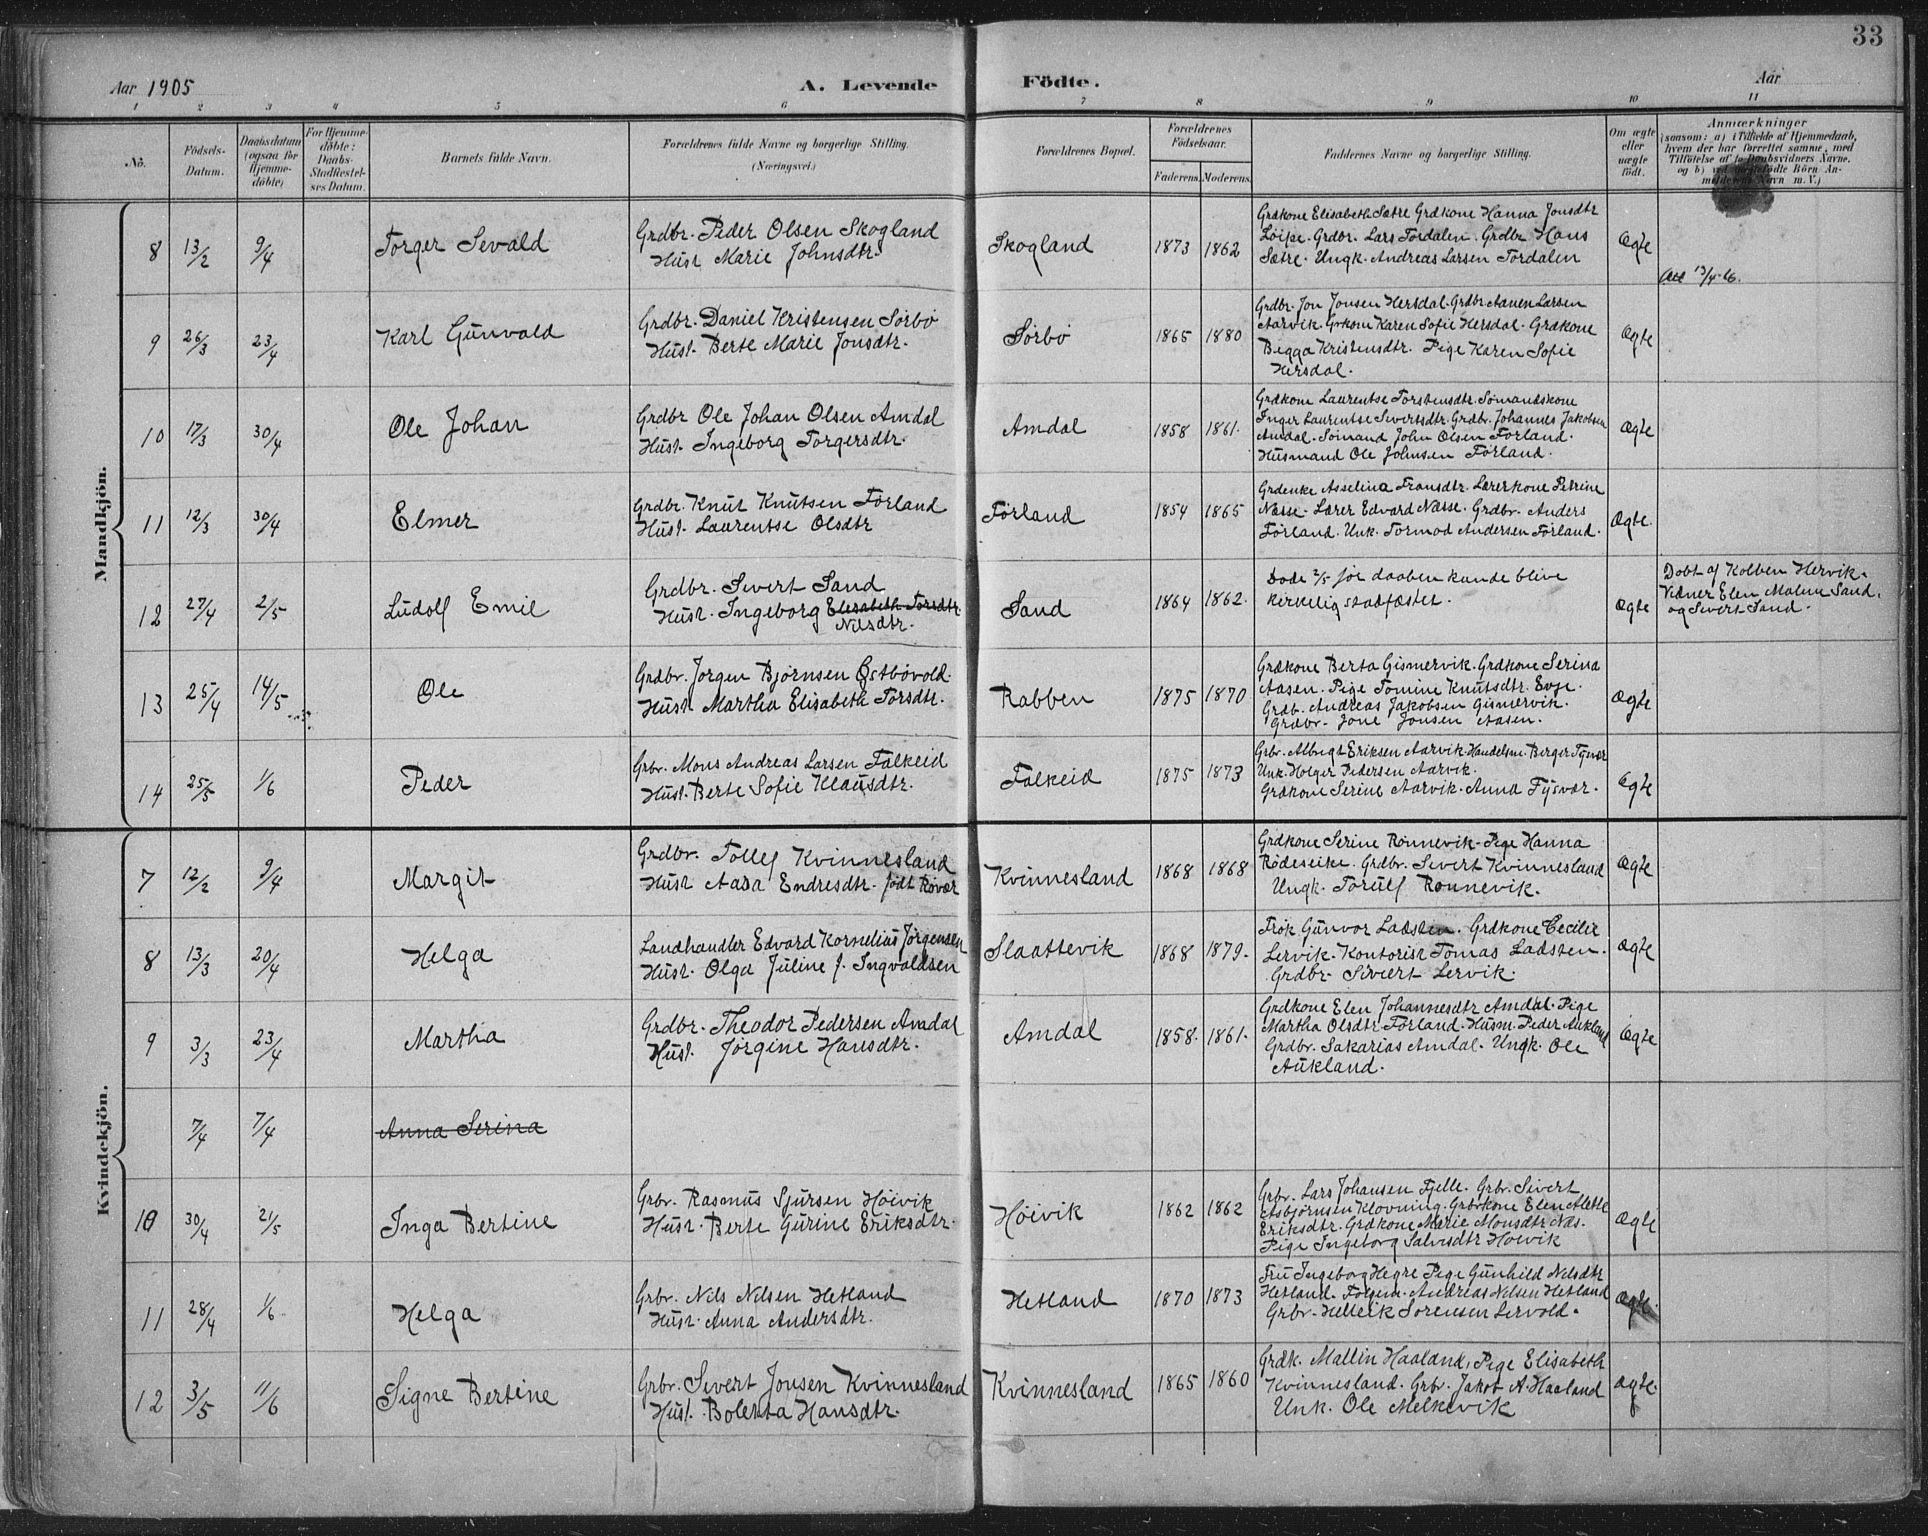 33
Aar 1905
A. Levende Födte.
Aar
1 2 3 4 5 6 7 8 9 10 11
No.
Födsels-Datum.
Daabsdatum (ogsaa for Hjemme-döbte)
For Hjemme-döbte: Daabs-Stadfæstel-ses Datum.
Barnets fulde Navn.
Forældrenes fulde Navne og borgerlige Stilling.
(Næringsvei.)
Forældrenes Bopæl.
Forældrenes Födselsaar.
Faderens. Moderens.
Faddernes Navne og borgerlige Stilling.
Om ægte eller uægte födt.
Anmærkninger
(saasom: a) i Tilfælde af Hjemmedaab,
hvem der har forrettet samme, med
Tilföielse af to Daabsvidners Navne.
og b) ved uægtefödte Börn An-
melderens Navn m. V.)
Mandkjön.
8 13/2 9/4 Torger Sevald
Grdbr. Peder Olsen Skogland
Hust Marie Johnsdtr.
Skogland 1873 1862
Grdkone Elisabeth Sætre Grdkone Hanna Jonsdtr
Grdbr. Lars Tordalen. Grdbr Hans
Sætre. Ungk. Andreas Larsen Tordalen
Ægte
13/4-16.
9 26/3 23/4 Karl Gunvald
Grdbr. Daniel Kristensen Sørbø
Hust. Berte Marie Jonsdtr.
Sørbø 1865 1880
Grdbr. Jon Jonsen Hersdal. Grdbr. Aanen Larsen
Aarvik. Grkone Karen Sofie Hersdal. Grdkone
Begga Kristensdtr. Pige Karen Sofie
Hersdal.
Ægte
10 17/3 30/4 Ole Johan
Grdbr Ole Johan Olsen Amdal
Hust. Ingeborg Torgersdtr.
Amdal 1858 1861.
Grdkone Laurentse Torstensdtr. Sømandskone
Inger Laurentse Sivertsdtr. Grdbr. Johannes Jakobsen
Amdal. Sømand John Olsen Førland.
Husmand Ole Johnsen Førland.
Ægte
11 12/3 30/4 Elmer
Grdbr. Knut Knutsen Førland
Hust. Laurentse Olsdtr
Førland 1854 1865
Grdenke Asselina Fransdtr. Lærerkone Petrine
Næsse. Lærer Edvard Næsse. Grdbr. Anders
Førland. Unk. Tormod Andersen Førland.
Ægte.
12 27/4 2/5 Ludolf Emil
Grdbr. Sivert Sand
Hust. Ingeborg Elisabeth Torsdtr
Nilsdtr.
Sand 1864 1862.
Døde 2/5 før daaben kunde blive
kirkelig stadfæstet.
Ægte
Døbt af Kolben Hervik.
Vidner Elen Malene Sand.
og Sivert Sand.
13 25/4 14/5 Ole
Grdbr. Jørgen Bjørnsen Østbøvold.
Hust. Martha Elisabeth Torsdtr.
Rabben 1875 1870
Grdkone Berta Gismervik. Grdkone Serina
Aasen. Pige Tomine Knutsdtr. Evje.
Grdb. Andreas Jakobsen Gismervik.
Grdbr. Jone Jonsen Aasen.
Ægte
14 25/5 1/6 Peder
Grbr. Mons Andreas Larsen Falkeid
Hust. Berte Sofie Klausdtr.
Falkeid 1875 1873
Grbr. Albrigt Eriksen Aarvik. Handelsm. Berger Tysvær
Unk. Holger Pedersen Aarvik.
Grdkone Serine Aarvik. Anna Tysvær.
Ægte
Kvindekjön.
7 12/2 9/4 Margit
Grdbr. Tollef Kvinnesland
Hust Aasa Endresdtr. født Røvær
Kvinnesland 1868 1868
Grdkone Serine Rønnevik. Pige Hanna
Rødeseike. Grdbr. Sivert Kvinnesland
Ungk. Torulf Rønnevik.
Ægte
8 13/3 20/4 Helga
Landhandler Edvard Kornelius Jørgensen
Hust. Olga Juline f. Ingvaldsen
Slaattevik 1868 1879.
Frøk Gunvor Ladsten. Grdkone Cecilie
Lervik. Kontorist Tomas Ladsten.
Grdbr. Sivert Lervik.
Ægte
9 3/3 23/4 Martha
Grdbr. Theodor Pedersen Amdal
Hust. Jørgine Hansdtr.
Amdal 1858. 1861.
Grdkone Elen Johannesdtr Amdal. Pige
Martha Olsdtr Førland. Husm. Peder Aukland
Grdbr. Sakarias Amdal. Ungk. Ole
Aukland.
Ægte
7/4 7/4 Anna Serina
10 30/4 21/5 Inga Bertine
Grbr. Rasmus Sjursen Høivik
Hust. Berte Gurine Eriksdtr.
Høivik 1862 1862
Grbr. Lars Johansen Fjelle. Grbr. Sivert
Asbjørnsen Kløvning. Grbrkone Elen Alette
Eriksdtr. Grdkone Marie Monsdtr Næs.
Pige Ingeborg Salvesdtr Høivik
Ægte
11 28/4 1/6 Helga
Grbr. Nils Nilsen Hetland
Hust. Anna Andersdtr.
Hetland 1870 1873
Fru Ingeborg Hegre Pige Gunhild Nilsdtr
Hetland. Andreas Nilsen Hetland
Grbr. Helleik Sørensen Lervold.
Ægte.
12 3/5 11/6 Signe Bertine
Grbr. Sivert Jonsen Kvinnesland
Hust. Boletta Hansdtr.
Kvinnesland 1865 1860
Grdk. Mallin Haaland, Pige Elisabeth
Kvinnesland. Grbr. Jakob A. Haaland
Unk. Ole Melkevik
Ægte.